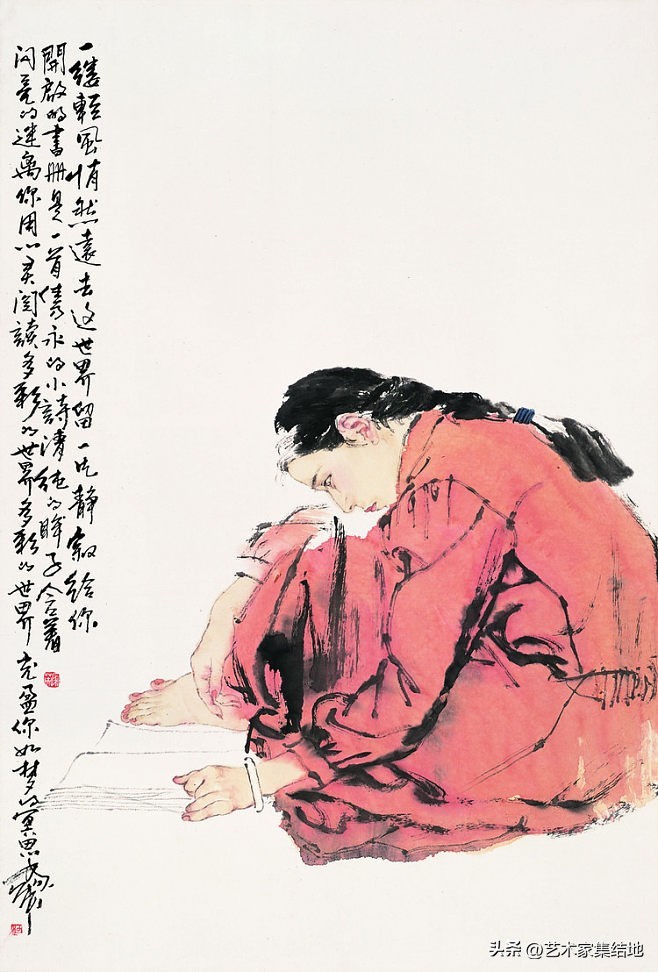 一缕輕風悄然遠去这世界留一片静寂给你
開啟的書册是一首儁永的小詩清純的眸子含着
闪亮的迷离你用心灵阅讀多彩的世界多彩的世界充盈你如梦的冥思
头条 @艺术家集结地